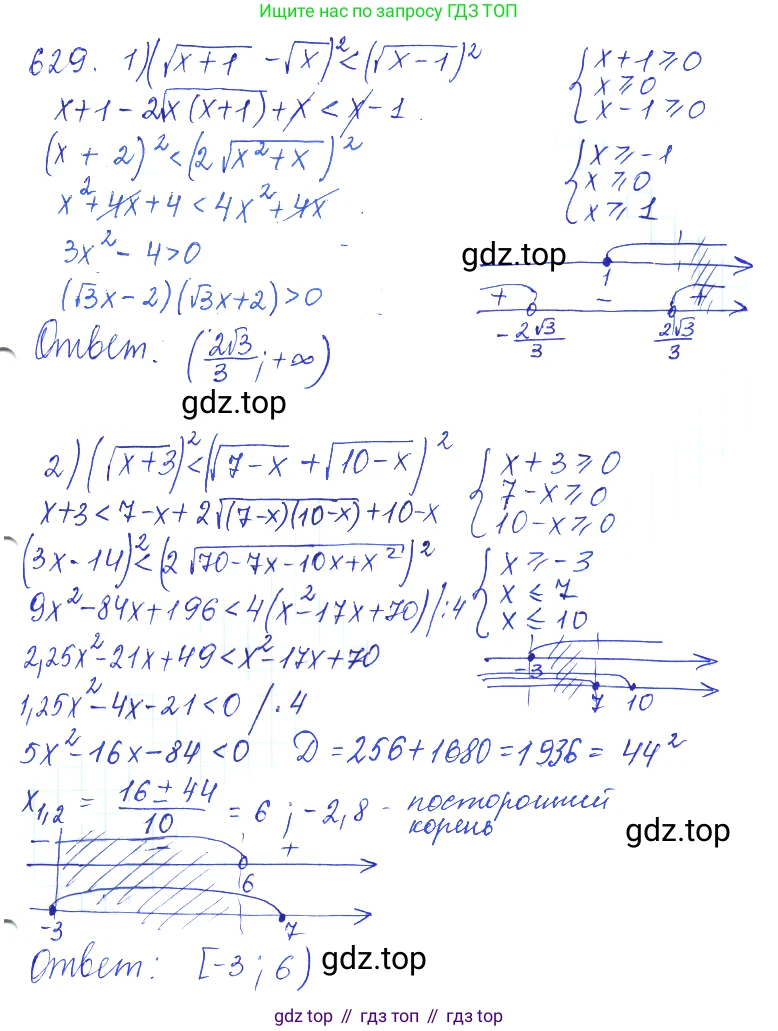 Ищите нас по запросу ГДЗ ТОП
629. 1) (√(x+1) - √x)² < (√(x-1))²
{ x+1 ⩾ 0
x ⩾ 0
x-1 ⩾ 0
x+1 - 2√(x(x+1)) + x < x - 1
(x + 2)² < (2√(x²+x))²
{ x ⩾ -1
x ⩾ 0
x ⩾ 1
x² + 4x + 4 < 4x² + 4x
3x² - 4 > 0
(√3x - 2)(√3x + 2) > 0
gdz.top
1
+ - +
-2√3/3 2√3/3
Ответ: (2√3/3; +∞)
gdz.top
2) (√(x+3))² < (√(7-x) + √(10-x))²
{ x+3 ⩾ 0
7-x ⩾ 0
10-x ⩾ 0
x+3 < 7-x + 2√((7-x)(10-x)) + 10-x
(3x - 14)² < (2√(70-7x-10x+x²))²
{ x ⩾ -3
x ⩽ 7
x ⩽ 10
9x² - 84x + 196 < 4(x² - 17x + 70) / :4
2,25x² - 21x + 49 < x² - 17x + 70
-3
7 10
1,25x² - 4x - 21 < 0 / ·4
5x² - 16x - 84 < 0 D = 256 + 1680 = 1936 = 44²
x₁,₂ = (16 ± 44)/10 = 6; -2,8 - посторонний корень
gdz.top
- - +
6
-3 7
Ответ: [-3; 6)
gdz.top
gdz.top // гдз топ // gdz.top